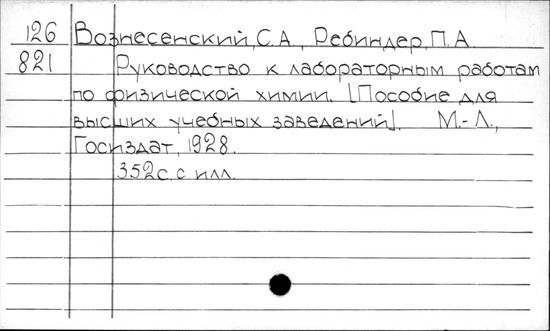 126 Вознесенский, С.А., Ребиндер, П.А.
821 Руководство к лабораторным работам
по физической химии. [Пособие для
высших учебных заведений]. М.-Л.,
Госиздат, 1928.
352 с. с илл.